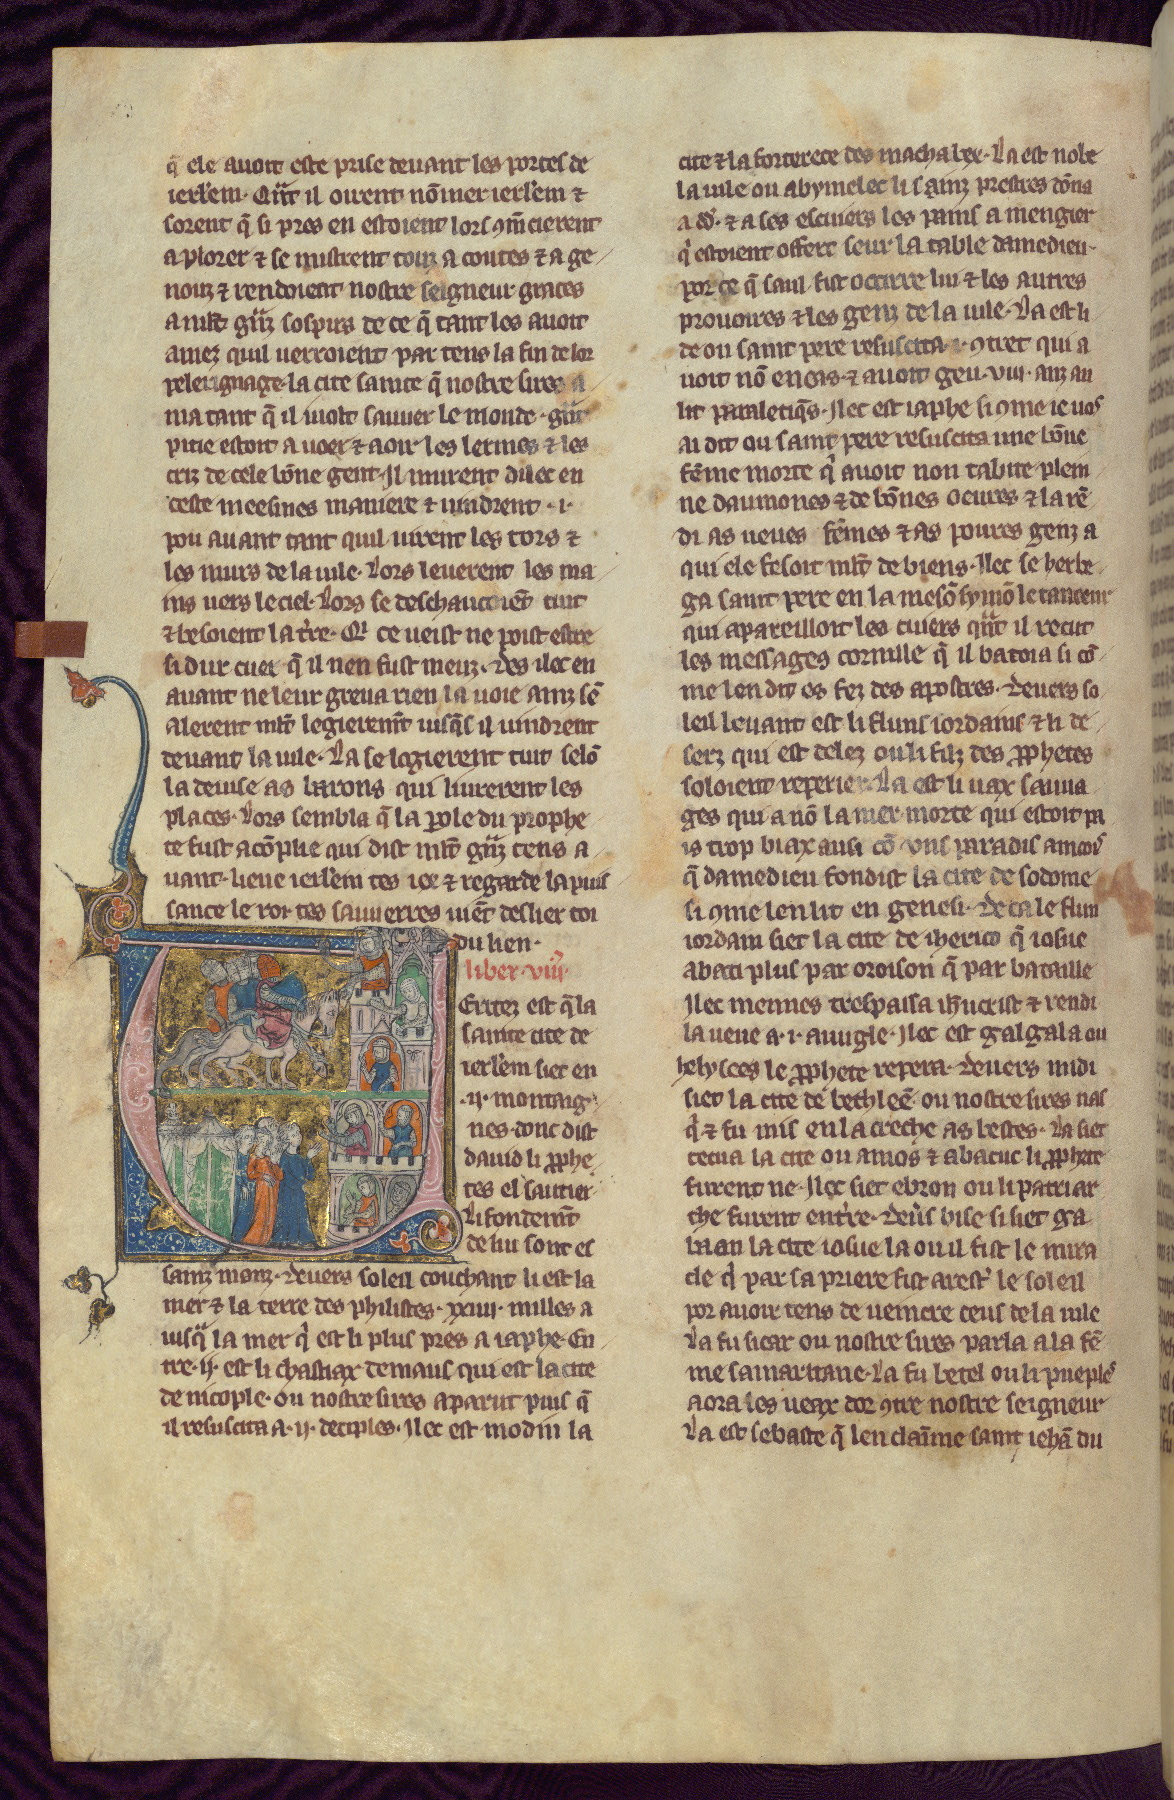 q̃ ele auoit este prise deuant les portes de
ierl'em. Q̃nt il oirent nõmer ierl'em ⁊
sorent q̃ si pres en estoient lors ꝯm̃cierent
a plorer ⁊ se mistrent touz a coutes ⁊ a ge
nouz ⁊ rendoient nostre seigneur graces
a mlt̃ g̃nz sospirs de ce q̃ tant les auoit
amez quil uerroient par tens la fin de lor
pelerignage. la cite sainte q̃ nostre sires a
ma tant q̃ il uolt sauuer le monde. g̃nt
pitie estoit a ueer ⁊ a oir les lermes ⁊ les
criz de cele bõne gent. Il murent dilec en
ceste meesmes maniere ⁊ uindrent .i.
pou auant tant quil uirent les tors ⁊
les murs de la uile. Lors leuerent les ma
ins uers le ciel. Lors se deschaucierẽt tuit
⁊ besoient la t̃re. Q̃ ce ueist ne poist estre
si dur cuer q̃ il nen fust meuz. Des ilec en
auant ne leur greua rien la uoie ainz sẽ
alerent mlt̃ legierem̃t iusq̃s il uindrent
deuant la uile. La se logierent tuit selõ
la deuise as barons qui liurerent les
places. Lors sembla q̃ la ꝑole du prophe
te fust acõplie qui dist mlt̃ g̃nz tens a
uant. lieue ierl'em tes iex ⁊ regarde la puis
sance le roi. tes sauuerres uiẽt deslier toi
du lien.
liber .viij.
Eritez est q̃ la
sainte cite de
ierl'em siet en
.ij. montaig
nes. donc dist
dauid li ꝓphe
tes el sautier
Li fondem̃t
de lui sont es
sainz monz. Deuers soleil couchant li est la
mer ⁊ la terre des philistes. xxiiij. milles a
iusq̃ la mer q̃ est li plus pres a iaphe. En
tre .ij. est li chastiax demaus qui est la cite
de nicople. ou nostre sires aparut puis q̃
il resuscita a .ij. deciples. Ilec est modin la
cite ⁊ la forterece des machabex. La est nobe
la uile ou abymelec li sainz prestres dõna
a dd̃. ⁊ a ses escuiers les pains a mengier
q̃ estoient offert seur la table damedieu.
por ce q̃ saul fist occirre lui ⁊ les autres
prouoires ⁊ les genz de la uile. La est li
de ou saint pere resuscita .i. ꝯtret qui a
uoit nõ eneas. ⁊ auoit geu .viij. anz au
lit paraletiq̃s. Ilec est iaphe si ꝯme ie uos
ai dit ou saint pere resuscita une bõne
fẽme morte q̃ auoit non tabite plein
ne daumones ⁊ de bõnes oeures ⁊ la rẽ
di as ueues fẽmes ⁊ as poures genz a
qui ele fesoit mlt̃ de biens. Ilec se herbe
ga saint pere en la mesõ symõ le tanneur
qui apareilloit les cuiers q̃nt il recut
les messages cornille q̃ il batoia si cõ
me len dit es fez des apostres. Deuers so
leil leuant est li fluns iordains ⁊ li de
serz qui est delez ou li filz des ꝓphetes
soloient reperier. La est li uax sauua
ges qui a nõ la mer morte qui estoit pa
is trop biax ausi cõ uns paradis aincois
q̃ damedieu fondist la cite de sodome
si ꝯme len lit en genesi. De ca le flun
iordain siet la cite de iherico q̃ iosue
abati plus par oroison q̃ par bataille
Ilec meimes trespassa ih̃ucrist ⁊ rendi
la ueue a .i. auugle. Ilec est galgala ou
helysees le ꝓphete repera. Deuers midi
siet la cite de bethleẽ. ou nostre sires nas
q̃ ⁊ fu mis en la creche as bestes. La siet
tecua la cite ou amos ⁊ abacuc li ꝓphete
furent ne. Ilec siet ebron ou li patriar
che furent ent̃re. Deũs bise si siet ga
baon la cite iosue la ou il fist le mira
cle q̃ par sa priere fist arest̃ le soleil
por auoir tens de ueincre ceus de la uile
La fu sicar ou nostre sires parla a la fẽ
me samaritane. La fu betel ou li pueples
aora les ueax dor ꝯtre nostre seigneur
La est sebaste q̃ len claĩme saint iehã du